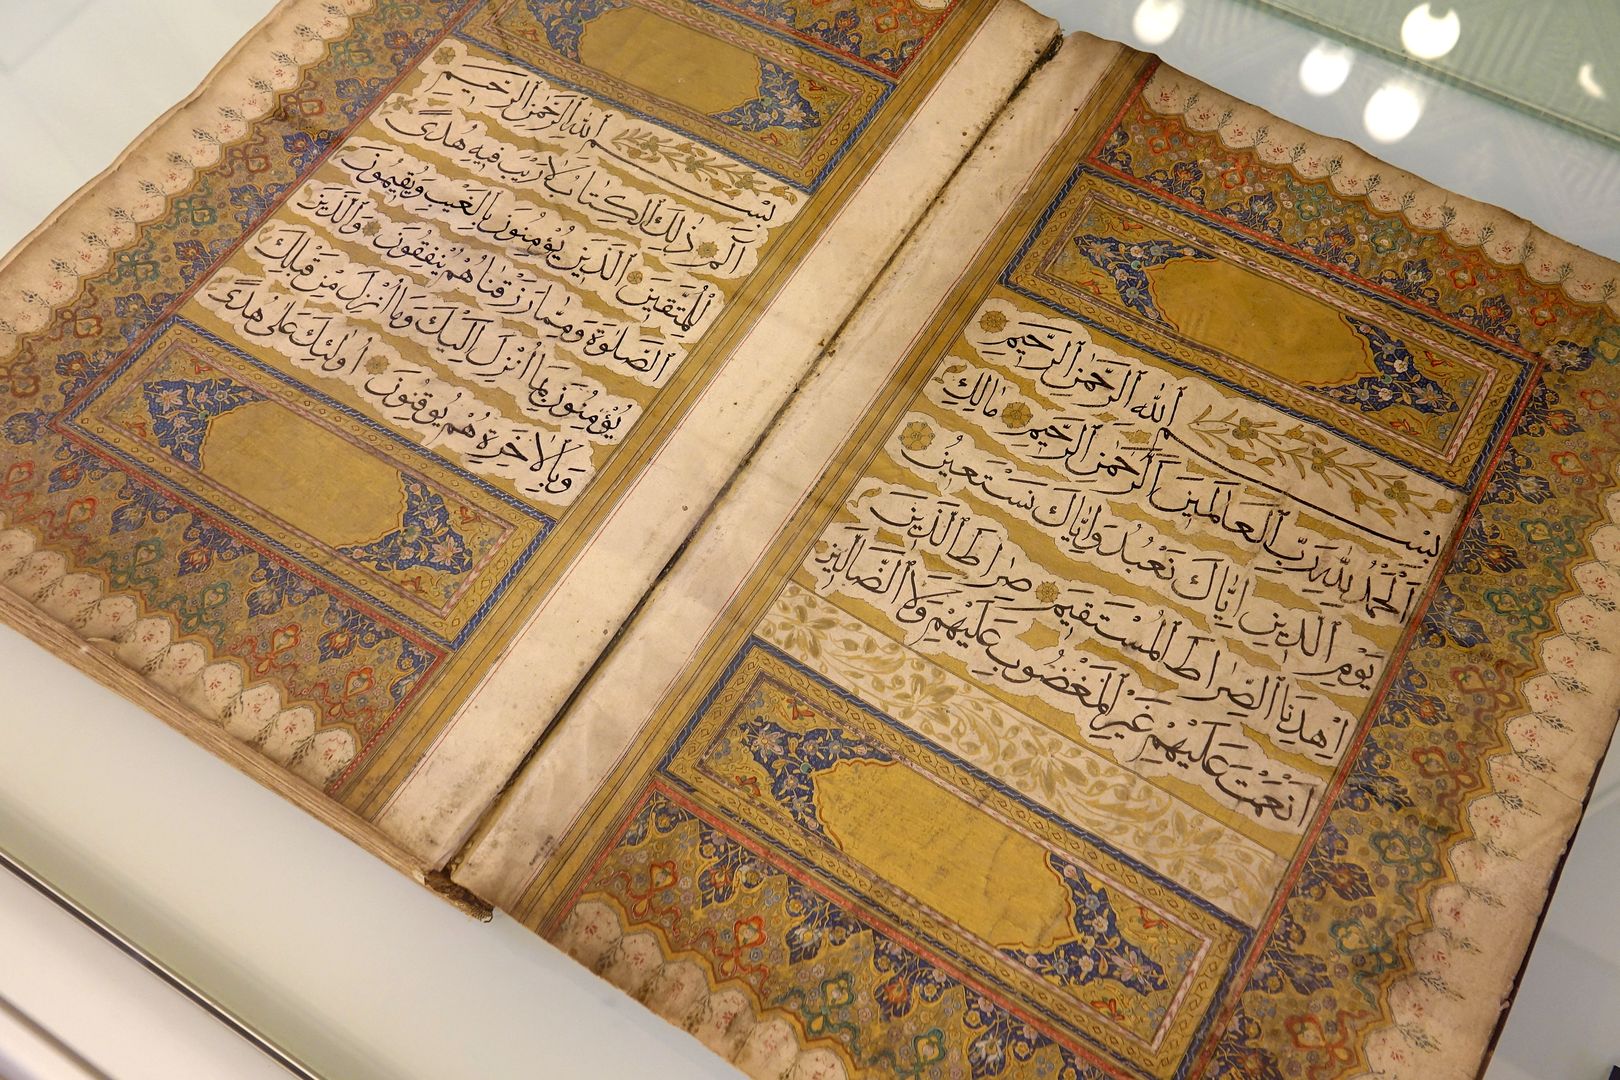 بِسْمِ ٱللّٰهِ ٱلرَّحْمٰنِ ٱلرَّحِيمِ
اَلْحَمْدُ لِلّٰهِ رَبِّ ٱلْعَالَمِينَ ٱلرَّحْمٰنِ ٱلرَّحِيمِ مَالِكِ
يَوْمِ ٱلدِّينِ اِيَّاكَ نَعْبُدُ وَاِيَّاكَ نَسْتَعِينُ
اِهْدِنَا ٱلصِّرَاطَ ٱلْمُسْتَقِيمَ صِرَاطَ ٱلَّذِينَ
اَنْعَمْتَ عَلَيْهِمْ غَيْرِ ٱلْمَغْضُوبِ عَلَيْهِمْ وَلَا ٱلضَّالِّينَ
بِسْمِ ٱللّٰهِ ٱلرَّحْمٰنِ ٱلرَّحِيمِ
الٓمٓ ذٰلِكَ ٱلْكِتَابُ لَا رَيْبَ فِيهِ هُدًى
لِلْمُتَّقِينَ ٱلَّذِينَ يُؤْمِنُونَ بِٱلْغَيْبِ وَيُقِيمُونَ
ٱلصَّلٰوةَ وَمِمَّا رَزَقْنَاهُمْ يُنْفِقُونَ وَٱلَّذِينَ
يُؤْمِنُونَ بِمَا اُنْزِلَ اِلَيْكَ وَمَا اُنْزِلَ مِنْ قَبْلِكَ
وَبِالْاٰخِرَةِ هُمْ يُوقِنُونَ اُولٰئِكَ عَلٰى هُدًى